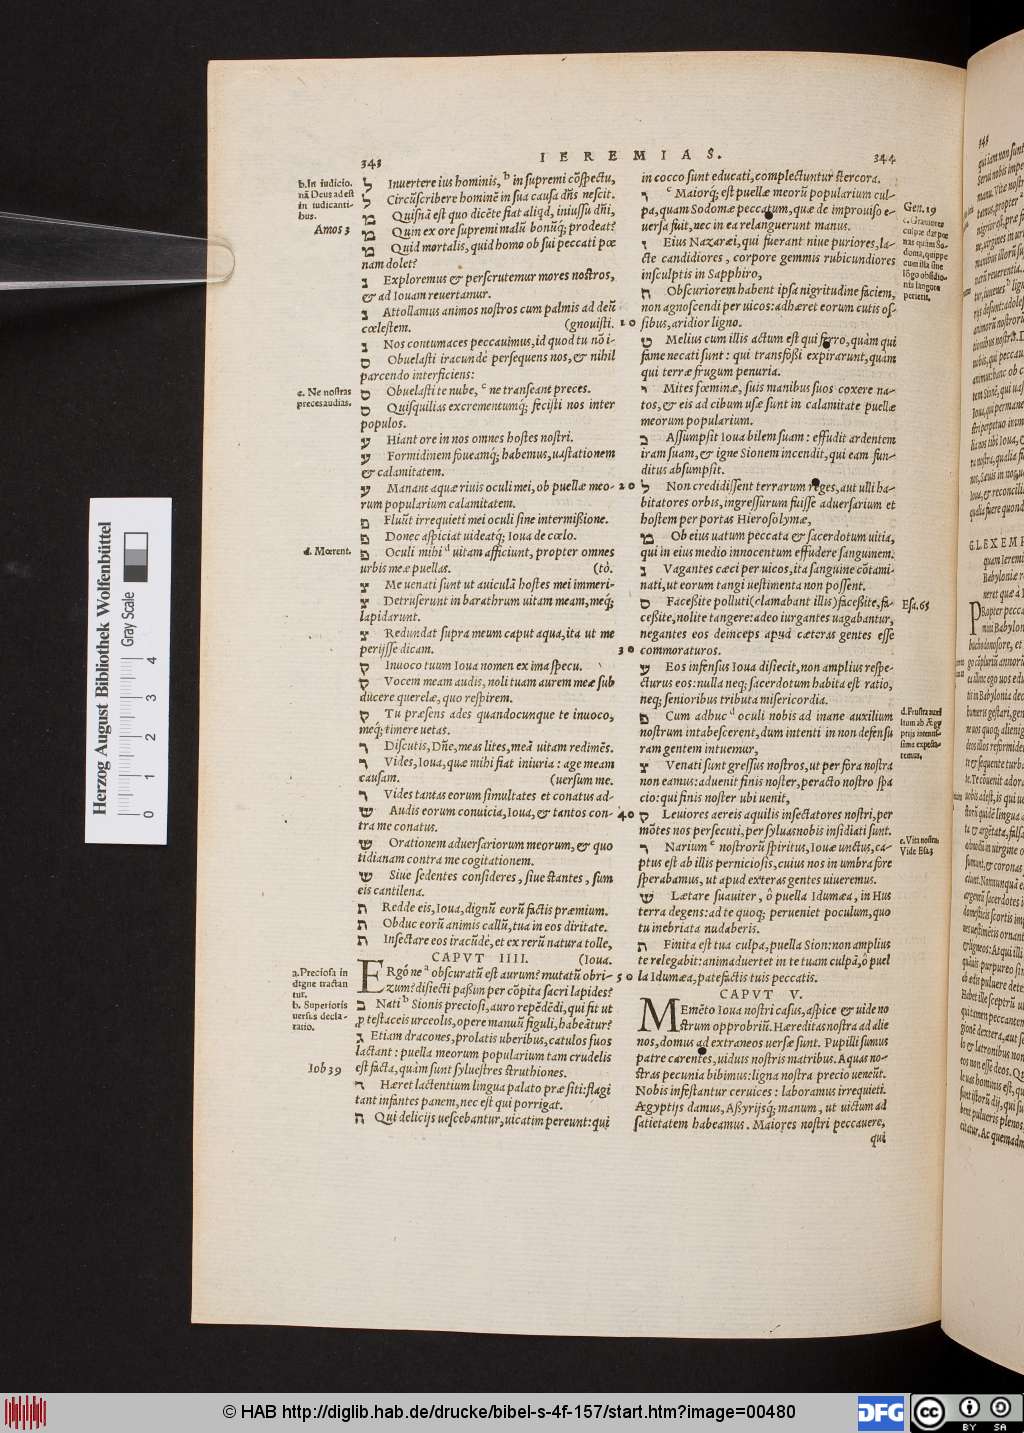 343
IEREMIAS.
344
b. In iudicio.
nā Deus adest
in iudicanti-
bus.
Amos 3
c. Ne nostras
preces audias.
d. Mœrent.
a. Preciosa in
digne tractan
tur.
b. Superioris
uersus decla-
ratio.
Iob 39
ל Inuertere ius hominis, b in supremi cōspectu,
ל Circūscribere hominē in sua causa dn̄s nescit.
מ Quisnā est quo dicēte fiat aliqd, iniussu dn̄i,
מ Quin ex ore supremi malū bonūq; prodeat?
מ Quid mortalis, quid homo ob sui peccati pœ
nam dolet?
נ Exploremus & perscrutemur mores nostros,
& ad Iouam reuertamur.
נ Attollamus animos nostros cum palmis ad deū
cœlestem. (gnouisti.
נ Nos contumaces peccauimus, id quod tu nō i-
ס Obuelasti iracundè persequens nos, & nihil
parcendo interficiens:
ס Obuelasti te nube, c ne transeant preces.
ס Quisquilias excrementumq; fecisti nos inter
populos.
ע Hiant ore in nos omnes hostes nostri.
ע Formidinem foueamq; habemus, uastationem
& calamitatem.
ע Manant aquæ riuis oculi mei, ob puellæ meo-
rum popularium calamitatem.
פ Fluūt irrequieti mei oculi sine intermißione.
פ Donec aspiciat uideatq; Ioua de cœlo.
פ Oculi mihi d uitam afficiunt, propter omnes
urbis meæ puellas. (tò.
צ Me uenati sunt ut auiculā hostes mei immeri-
צ Detruserunt in barathrum uitam meam, meq;
lapidarunt.
צ Redundat supra meum caput aqua, ita ut me
perijsse dicam.
ק Inuoco tuum Ioua nomen ex ima specu.
ק Vocem meam audis, noli tuam aurem meæ sub
ducere querelæ, quo respirem.
ק Tu præsens ades quandocunque te inuoco,
meq; timere uetas.
ר Discutis, Dn̄e, meas lites, meā uitam redimēs.
ר Vides, Ioua, quæ mihi fiat iniuria: age meam
causam. (uersum me.
ר Vides tantas eorum simultates et conatus ad-
ש Audis eorum conuicia, Ioua, & tantos con-
tra me conatus.
ש Orationem aduersariorum meorum, & quo
tidianam contra me cogitationem.
ש Siue sedentes consideres, siue stantes, sum
eis cantilena.
ת Redde eis, Ioua, dignū eorū factis præmium.
ת Obduc eorū animis callū, tua in eos diritate.
ת Insectare eos iracūdè, et ex rerū natura tolle,
CAPVT IIII. (Ioua.
ERgóne a obscuratū est aurum? mutatū obri-
zum? disiecti paßim per cōpita sacri lapides?
ב Nati b Sionis preciosi, auro repēdēdi, qui fit ut
ꝓ testaceis urceolis, opere manuū figuli, habeātur?
ג Etiam dracones, prolatis uberibus, catulos suos
lactant: puella meorum popularium tam crudelis
est facta, quàm sunt syluestres struthiones.
ד Hæret lactentium lingua palato præ siti: flagi
tant infantes panem, nec est qui porrigat.
ה Qui delicijs uescebantur, uicatim pereunt: qui
10
20
30
40
50
in cocco sunt educati, complectuntur stercora.
ו c Maiorq; est puellæ meorū popularium cul-
pa, quam Sodomæ peccatum, quæ de improuiso e-
uersa fuit, nec in ea relanguerunt manus.
ז Eius Nazaræi, qui fuerant niue puriores, la-
cte candidiores, corpore gemmis rubicundiores
insculptis in Sapphiro,
ח Obscuriorem habent ipsa nigritudine faciem,
non agnoscendi per uicos: adhæret eorum cutis os-
sibus, aridior ligno.
ט Melius cum illis actum est qui ferro, quàm qui
fame necati sunt: qui transfoßi expirarunt, quàm
qui terræ frugum penuria.
י Mites fœminæ, suis manibus suos coxere na-
tos, & eis ad cibum usæ sunt in calamitate puellæ
meorum popularium.
כ Assumpsit Ioua bilem suam: effudit ardentem
iram suam, & igne Sionem incendit, qui eam fun-
ditus absumpsit.
ל Non credidissent terrarum reges, aut ulli ha-
bitatores orbis, ingressurum fuisse aduersarium et
hostem per portas Hierosolymæ,
מ Ob eius uatum peccata & sacerdotum uitia,
qui in eius medio innocentum effudere sanguinem.
נ Vagantes cæci per uicos, ita sanguine cōtami-
nati, ut eorum tangi uestimenta non possent.
ס Faceßite polluti (clamabant illis) faceßite, fa-
ceßite, nolite tangere: adeo iurgantes uagabantur,
negantes eos deinceps apud cæteras gentes esse
commoraturos.
ע Eos infensus Ioua disiecit, non amplius respe-
cturus eos: nulla neq; sacerdotum habita est ratio,
neq; senioribus tributa misericordia.
פ Cum adhuc d oculi nobis ad inane auxilium
nostrum intabescerent, dum intenti in non defensu
ram gentem intuemur,
צ Venati sunt gressus nostros, ut per fora nostra
non eamus: aduenit finis noster, peracto nostro spa
cio: qui finis noster ubi uenit,
ק Leuiores aereis aquilis insectatores nostri, per
mōtes nos persecuti, per syluas nobis insidiati sunt.
ר Narium e nostrorū spiritus, Iouæ unctus, ca-
ptus est ab illis perniciosis, cuius nos in umbra fore
sperabamus, ut apud exteras gentes uiueremus.
ש Lætare suauiter, ô puella Idumæa, in Hus
terra degens: ad te quoq; perueniet poculum, quo
tu inebriata nudaberis.
ת Finita est tua culpa, puella Sion: non amplius
te relegabit: animaduertet in te tuam culpā, ô puel
la Idumæa, patefactis tuis peccatis.
CAPVT V.
MEmēto Ioua nostri casus, aspice & uide no
strum opprobriū. Hæreditas nostra ad alie
nos, domus ad extraneos uersæ sunt. Pupilli sumus
patre carentes, uiduis nostris matribus. Aquas no-
stras pecunia bibimus: ligna nostra precio ueneūt.
Nobis infestantur ceruices: laboramus irrequieti.
Ægyptijs damus, Aßyrijsq; manum, ut uictum ad
satietatem habeamus. Maiores nostri peccauere,
qui
Gen. 19
c. Grauiores
culpæ dat pœ
nas quàm So-
doma, quippe
cum illa sine
lōgo obsidio-
nis langore
perierit.
Esa. 65
d. Frustra auxi
lium ab Ægy
ptijs intentis-
sima expecta-
remus.
e. Vita nostra.
Vide Esa. 3
Herzog August Bibliothek Wolfenbüttel
Gray Scale
0 1 2 3 4
© HAB http://diglib.hab.de/drucke/bibel-s-4f-157/start.htm?image=00480
DFG
cc
BY SA